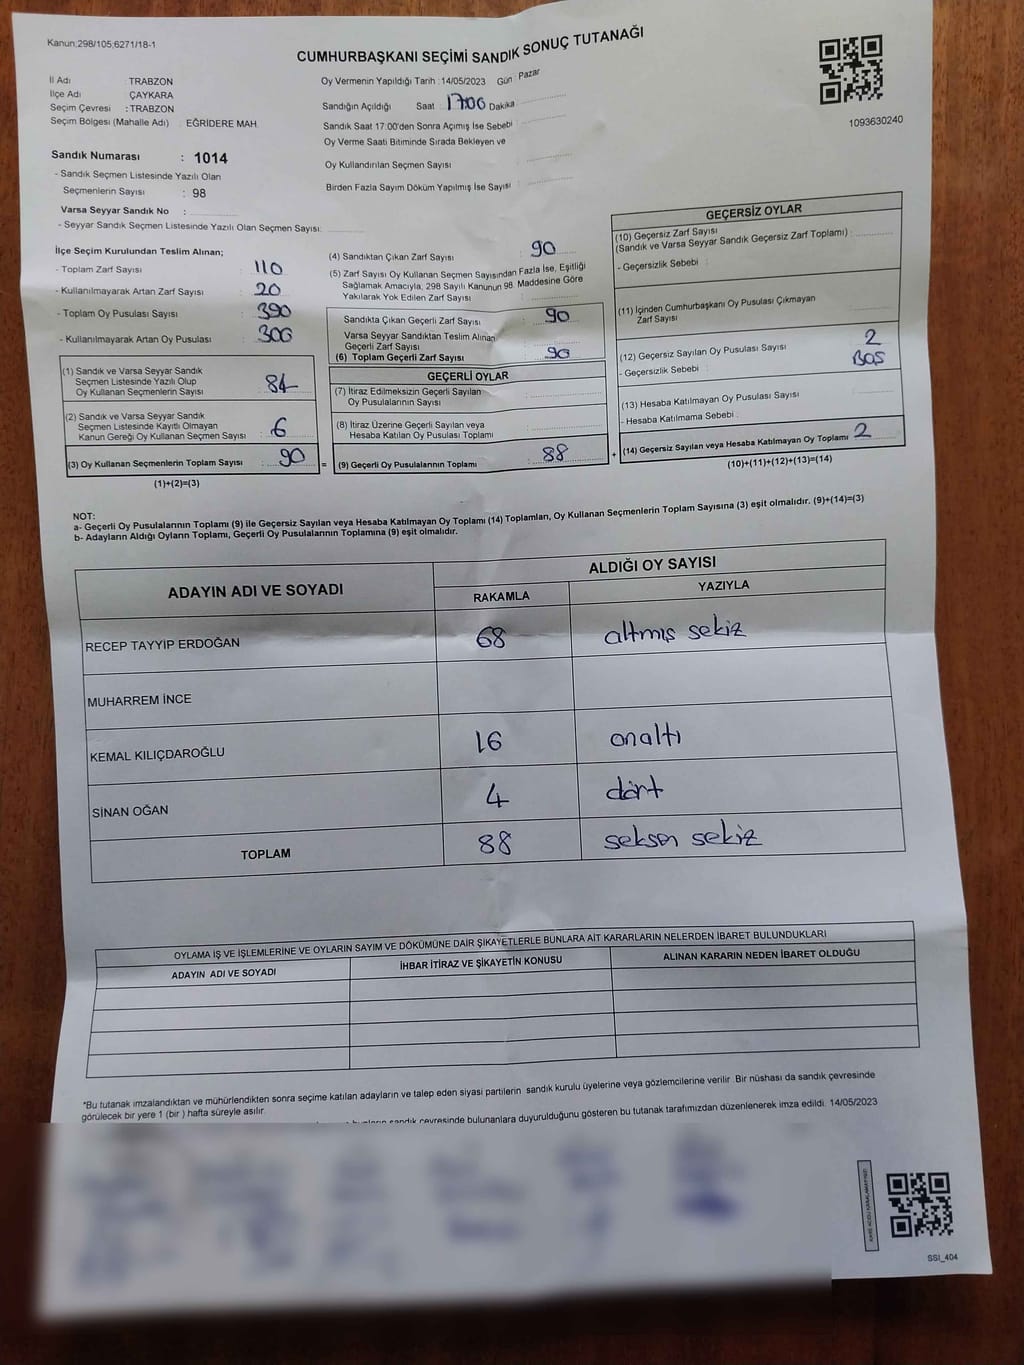 Kanun;298/105;6271/18-1
CUMHURBAŞKANI SEÇİMİ SANDIK SONUÇ TUTANAĞI
1093630240
İl Adı TRABZON
İlçe Adı ÇAYKARA
Seçim Çevresi : TRABZON
Seçim Bölgesi (Mahalle Adı) : EĞRİDERE MAH.
Sandık Numarası : 1014
- Sandık Seçmen Listesinde Yazılı Olan
Seçmenlerin Sayısı : 98
Varsa Seyyar Sandık No :
- Seyyar Sandık Seçmen Listesinde Yazılı Olan Seçmen Sayısı:
Oy Vermenin Yapıldığı Tarih :14/05/2023 Gün : Pazar
Sandığın Açıldığı Saat 17:00 Dakika
Sandık Saat 17:00'den Sonra Açımış İse Sebebi :
Oy Verme Saati Bitiminde Sırada Bekleyen ve
Oy Kullandırılan Seçmen Sayısı :
Birden Fazla Sayım Döküm Yapılmış İse Sayısı :
İlçe Seçim Kurulundan Teslim Alınan;
- Toplam Zarf Sayısı : 110
- Kullanılmayarak Artan Zarf Sayısı : 20
- Toplam Oy Pusulası Sayısı : 390
- Kullanılmayarak Artan Oy Pusulası : 300
(1) Sandık ve Varsa Seyyar Sandık
Seçmen Listesinde Yazılı Olup
Oy Kullanan Seçmenlerin Sayısı : 84
(2) Sandık ve Varsa Seyyar Sandık
Seçmen Listesinde Kayıtlı Olmayan
Kanun Gereği Oy Kullanan Seçmen Sayısı : 6
(3) Oy Kullanan Seçmenlerin Toplam Sayısı : 90
(1)+(2)=(3)
(4) Sandıktan Çıkan Zarf Sayısı : 90
(5) Zarf Sayısı Oy Kullanan Seçmen Sayısından Fazla İse, Eşitliği
Sağlamak Amacıyla, 298 Sayılı Kanunun 98. Maddesine Göre
Yakılarak Yok Edilen Zarf Sayısı :
Sandıkta Çıkan Geçerli Zarf Sayısı : 90
Varsa Seyyar Sandıktan Teslim Alınan
Geçerli Zarf Sayısı :
(6) Toplam Geçerli Zarf Sayısı : 90
=
GEÇERLİ OYLAR
(7) İtiraz Edilmeksizin Geçerli Sayılan
Oy Pusulalarının Sayısı :
(8) İtiraz Üzerine Geçerli Sayılan veya
Hesaba Katılan Oy Pusulası Toplamı :
(9) Geçerli Oy Pusulalarının Toplamı : 88
+
GEÇERSİZ OYLAR
(10) Geçersiz Zarf Sayısı
(Sandık ve Varsa Seyyar Sandık Geçersiz Zarf Toplamı) :
- Geçersizlik Sebebi :
(11) İçinden Cumhurbaşkanı Oy Pusulası Çıkmayan
Zarf Sayısı :
(12) Geçersiz Sayılan Oy Pusulası Sayısı : 2
- Geçersizlik Sebebi : BOŞ
(13) Hesaba Katılmayan Oy Pusulası Sayısı :
- Hesaba Katılmama Sebebi :
(14) Geçersiz Sayılan veya Hesaba Katılmayan Oy Toplamı 2
(10)+(11)+(12)+(13)=(14)
NOT:
a- Geçerli Oy Pusulalarının Toplamı (9) ile Geçersiz Sayılan veya Hesaba Katılmayan Oy Toplamı (14) Toplamları, Oy Kullanan Seçmenlerin Toplam Sayısına (3) eşit olmalıdır. (9)+(14)=(3)
b- Adayların Aldığı Oyların Toplamı, Geçerli Oy Pusulalarının Toplamına (9) eşit olmalıdır.
ADAYIN ADI VE SOYADI ALDIĞI OY SAYISI
RAKAMLA YAZIYLA
RECEP TAYYİP ERDOĞAN 68 altmış sekiz
MUHARREM İNCE
KEMAL KILIÇDAROĞLU 16 onaltı
SİNAN OĞAN 4 dört
TOPLAM 88 seksen sekiz
OYLAMA İŞ VE İŞLEMLERİNE VE OYLARIN SAYIM VE DÖKÜMÜNE DAİR ŞİKAYETLERLE BUNLARA AİT KARARLARIN NELERDEN İBARET BULUNDUKLARI
ADAYIN ADI VE SOYADI İHBAR İTİRAZ VE ŞİKAYETİN KONUSU ALINAN KARARIN NEDEN İBARET OLDUĞU
*Bu tutanak imzalandıktan ve mühürlendikten sonra seçime katılan adayların ve talep eden siyasi partilerin sandık kurulu üyelerine veya gözlemcilerine verilir. Bir nüshası da sandık çevresinde
görülecek bir yere 1 (bir ) hafta süreyle asılır.
sandık çevresinde bulunanlara duyurulduğunu gösteren bu tutanak tarafımızdan düzenlenerek imza edildi. 14/05/2023
SSI_404